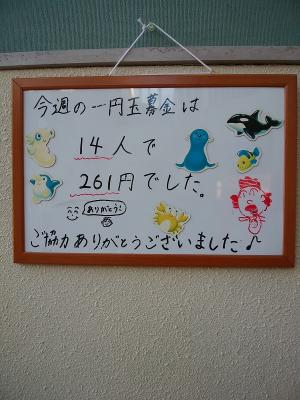 今週の一円玉募金は
14人で
261円でした。
ありがとう!
ご協力ありがとうございました♪